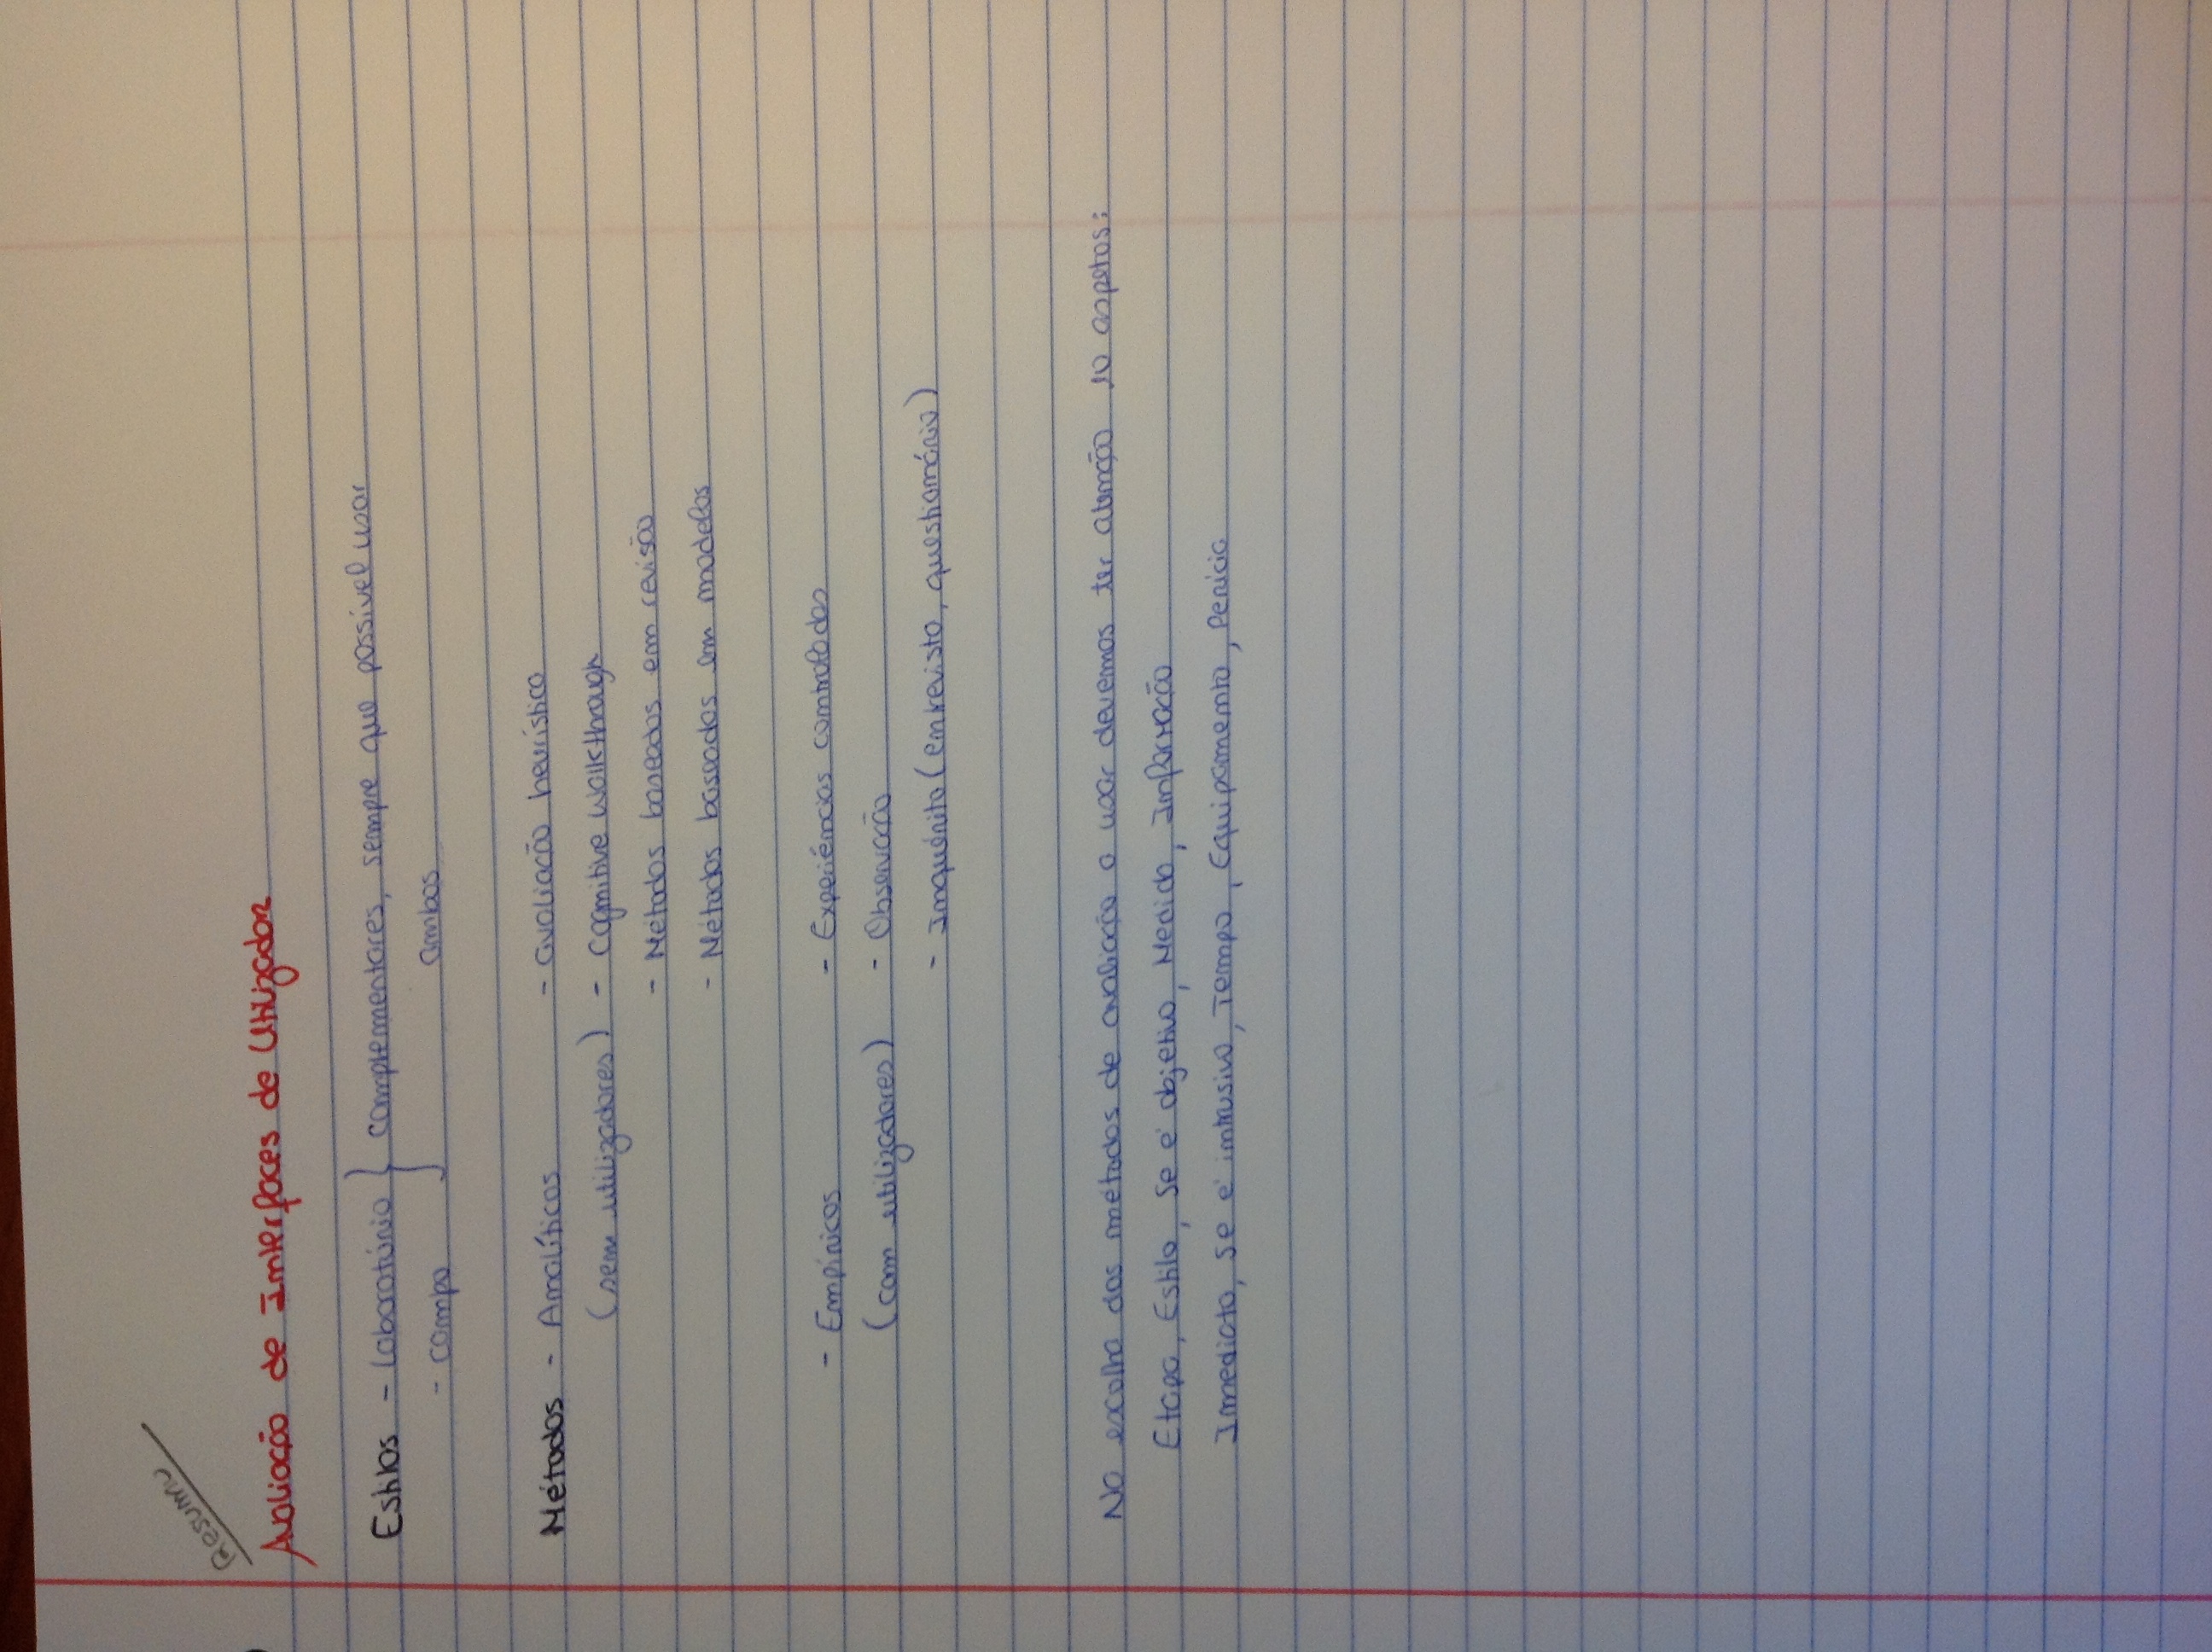 Resumo
Avaliação de Interfaces de Utilizador
Estilos - Laboratório } complementares, sempre que possível usar
- campo ambos
Métodos - Analíticos - avaliação heurística
(sem utilizadores) - Cognitive Walkthrough
- Métodos baseados em revisão
- Métodos baseados em modelos
- Empíricos - Experiências controladas
(com utilizadores) - Observação
- Inquérito (entrevista, questionário)
Na escolha dos métodos de avaliação a usar devemos ter atenção 10 aspetos:
Etapa, Estilo, Se é objetivo, Medida, Informação
Imediata, Se é intrusivo, Tempo, Equipamento, Perícia